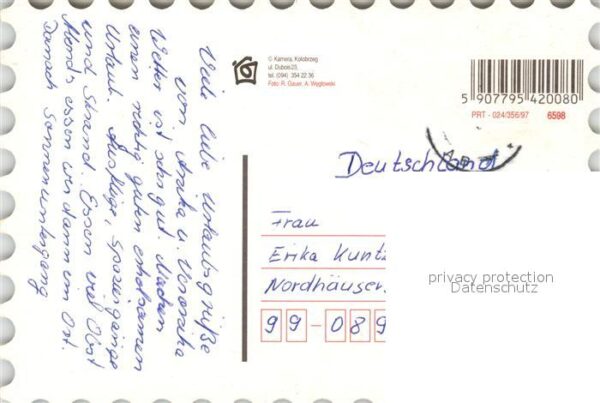 Viele liebe Urlaubsgrüße
von
Wetter ist sehr gut. Machen
einen richtig guten erholsamen
Urlaub. Ausflüge, Spaziergänge
und Strand. Essen viel Obst
Abends essen wir dann im Ort.
Danach Sonnenuntergang
© Kamera, Kołobrzeg
ul. Dubois
tel. (094) 354 22 36
Foto: R. Gauer, A. Węglowski
5 907795 420080
PRT - 024/356/97 6598
Deutschland
Frau
Erika Kuntz
Nordhäuser.
99-089
privacy protection
Datenschutz